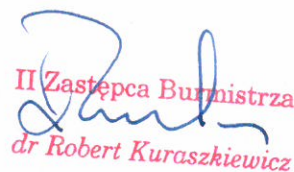 II Zastępca Burmistrza
dr Robert Kuraszkiewicz